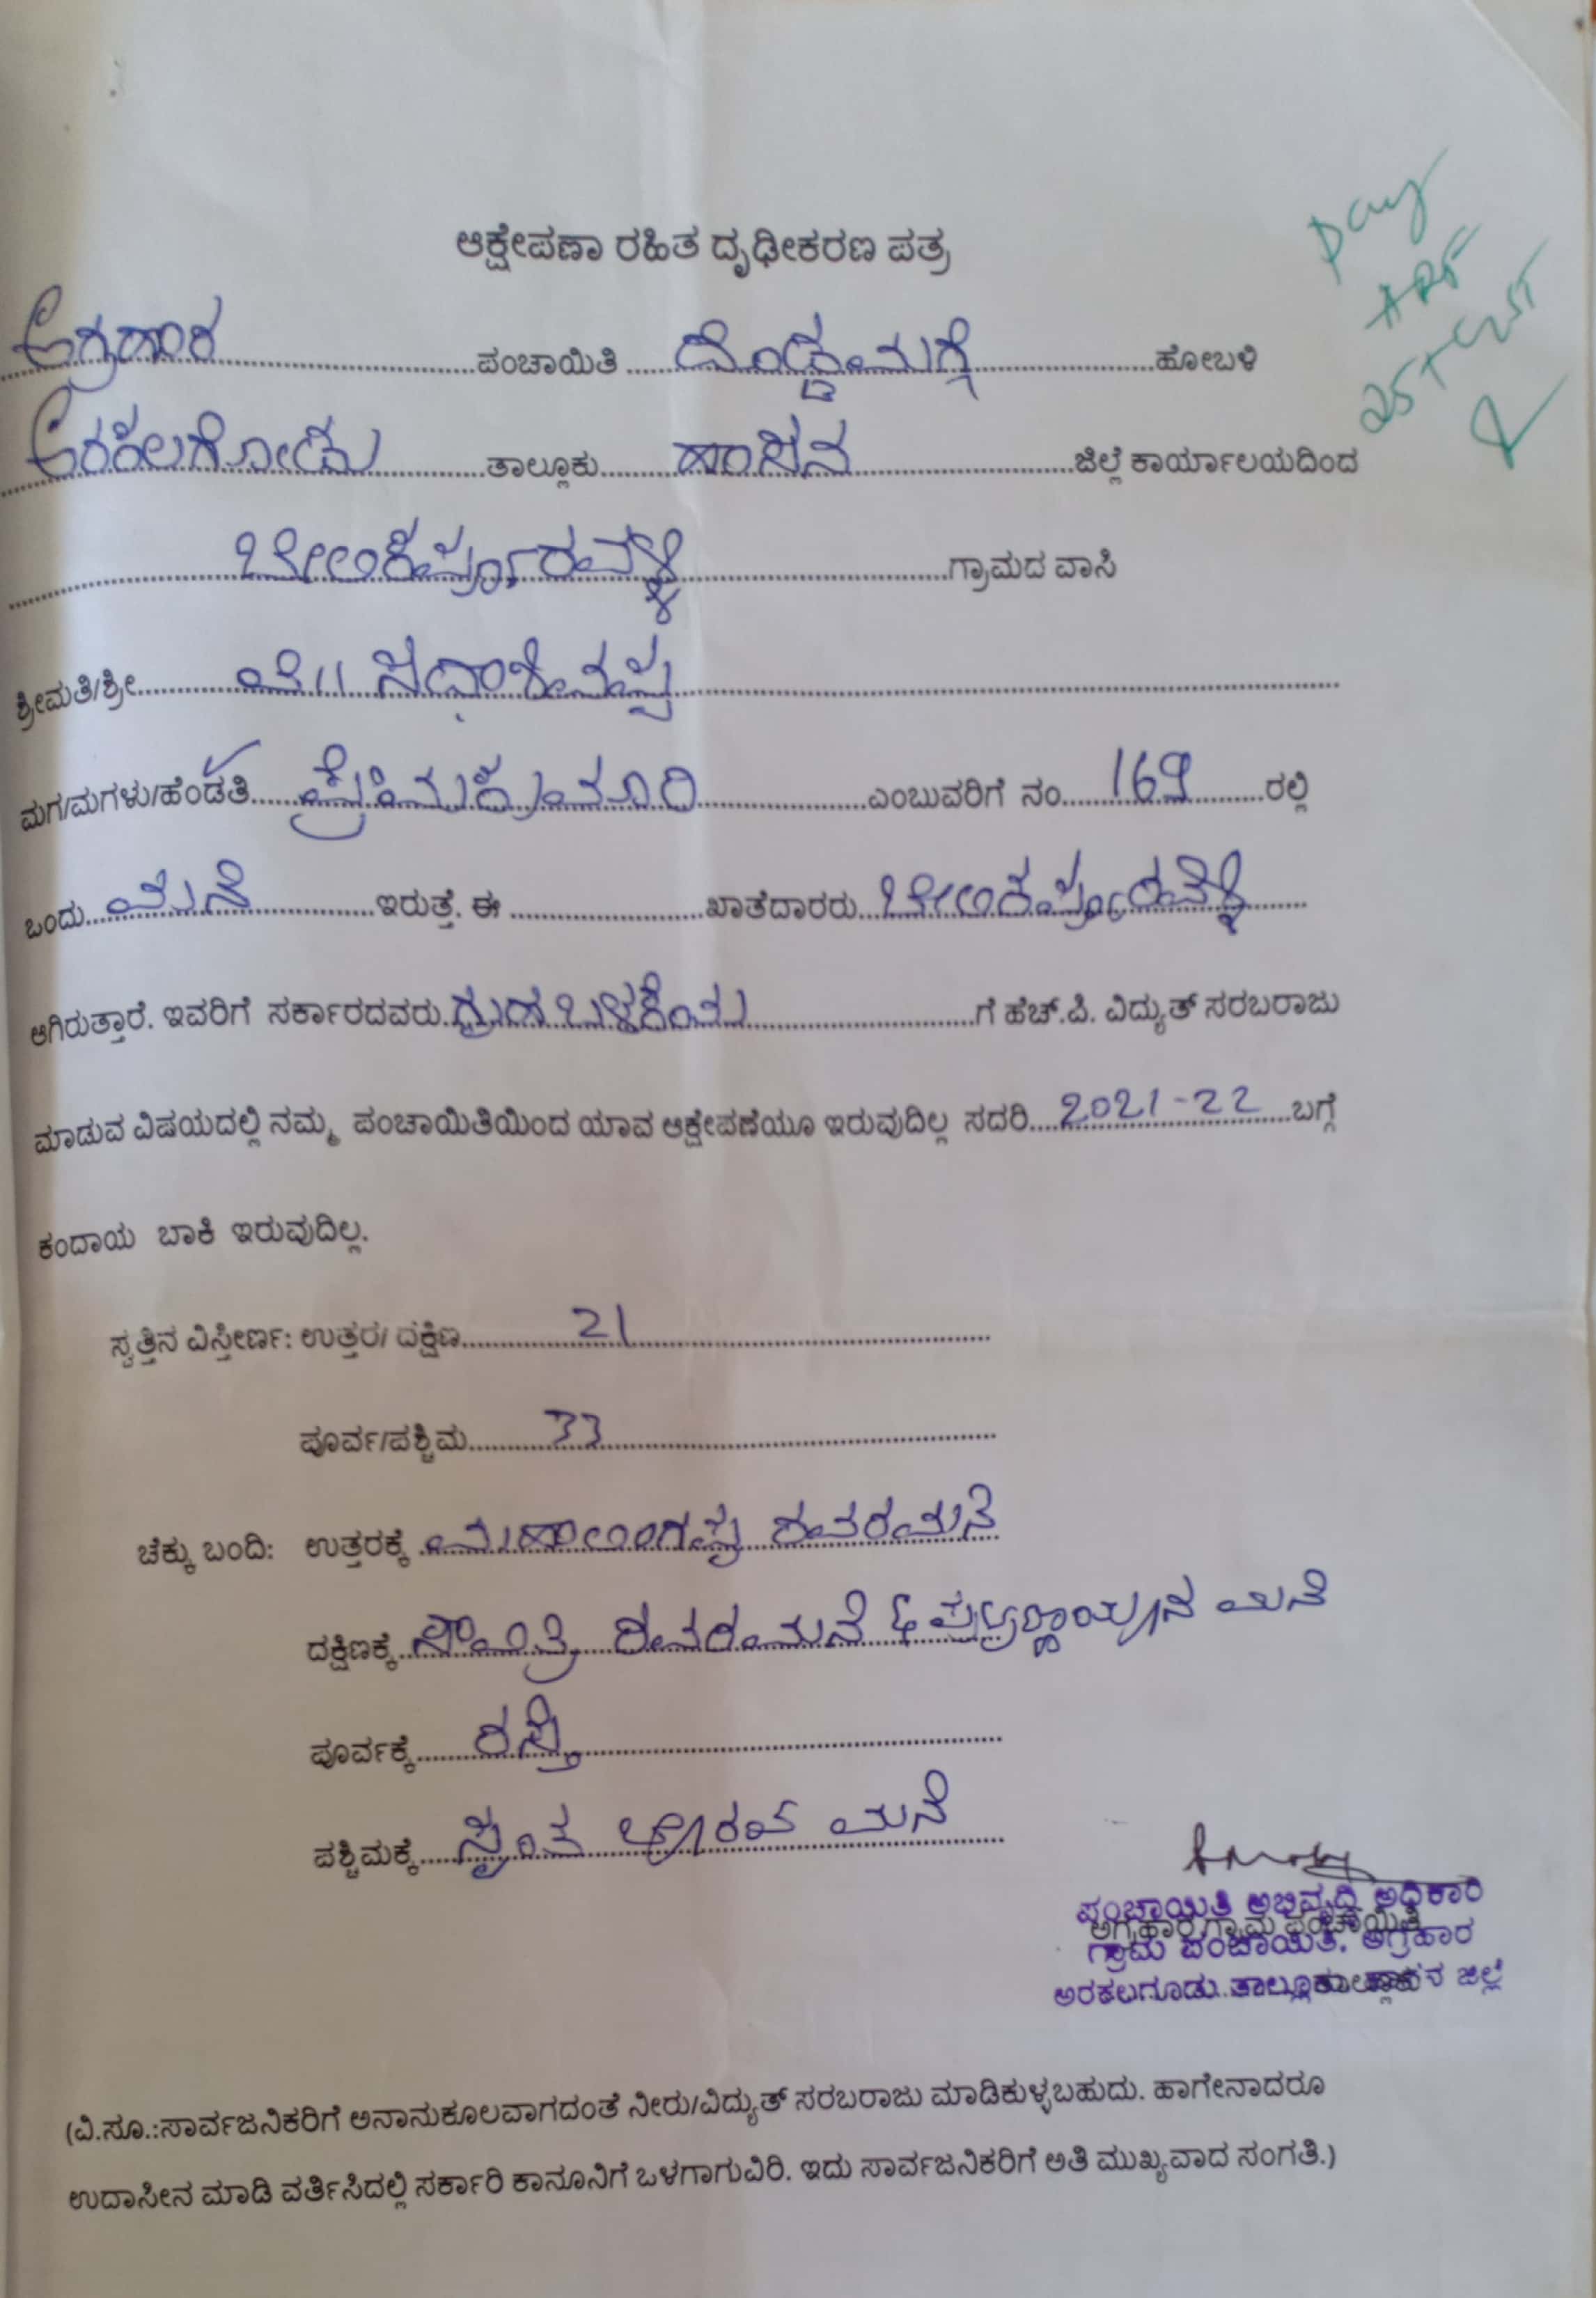 ಆಕ್ಷೇಪಣಾ ರಹಿತ ದೃಢೀಕರಣ ಪತ್ರ
ಅಗ್ರಹಾರ ಪಂಚಾಯಿತಿ ದೊಡ್ಡಮಗ್ಗೆ ಹೋಬಳಿ
ಅರಕಲಗೋಡು ತಾಲ್ಲೂಕು ಹಾಸನ ಜಿಲ್ಲೆ ಕಾರ್ಯಾಲಯದಿಂದ
ಗ್ರಾಮದ ವಾಸಿ
ಶ್ರೀಮತಿ/ಶ್ರೀ ಸದಾಶಿವಪ್ಪ
ಮಗ/ಮಗಳು/ಹೆಂಡತಿ ಪ್ರೇಮಕುಮಾರಿ ಎಂಬುವರಿಗೆ ನಂ. 169 ರಲ್ಲಿ
ಒಂದು ಮನೆ ಇರುತ್ತೆ. ಈ ಖಾತೆದಾರರು
ಆಗಿರುತ್ತಾರೆ. ಇವರಿಗೆ ಸರ್ಕಾರದವರು ಗೃಹ ಬಳಕೆಯ ಗೆ ಹೆಚ್.ಪಿ. ವಿದ್ಯುತ್ ಸರಬರಾಜು
ಮಾಡುವ ವಿಷಯದಲ್ಲಿ ನಮ್ಮ ಪಂಚಾಯಿತಿಯಿಂದ ಯಾವ ಆಕ್ಷೇಪಣೆಯೂ ಇರುವುದಿಲ್ಲ ಸದರಿ 2021-22 ಬಗ್ಗೆ
ಕಂದಾಯ ಬಾಕಿ ಇರುವುದಿಲ್ಲ.
ಸ್ವತ್ತಿನ ವಿಸ್ತೀರ್ಣ: ಉತ್ತರ/ ದಕ್ಷಿಣ 21
ಪೂರ್ವ/ಪಶ್ಚಿಮ 33
ಚೆಕ್ಕು ಬಂದಿ: ಉತ್ತರಕ್ಕೆ ಮಹಾಲಿಂಗಪ್ಪ ರವರ ಮನೆ
ದಕ್ಷಿಣಕ್ಕೆ ಸಾವಿತ್ರಿ ರವರ ಮನೆ & ಮನೆ
ಪೂರ್ವಕ್ಕೆ ರಸ್ತೆ
ಪಶ್ಚಿಮಕ್ಕೆ ಸ್ವಂತ ಮನೆ
ಪಂಚಾಯಿತಿ ಅಭಿವೃದ್ಧಿ ಅಧಿಕಾರಿ
ಅಗ್ರಹಾರ ಗ್ರಾಮ ಪಂಚಾಯಿತಿ
ಗ್ರಾಮ ಪಂಚಾಯಿತಿ. ಅಗ್ರಹಾರ
ಅರಕಲಗೂಡು ತಾಲ್ಲೂಕು ಹಾಸನ ಜಿಲ್ಲೆ
(ವಿ.ಸೂ.:ಸಾರ್ವಜನಿಕರಿಗೆ ಅನಾನುಕೂಲವಾಗದಂತೆ ನೀರು/ವಿದ್ಯುತ್ ಸರಬರಾಜು ಮಾಡಿಕುಳ್ಳಬಹುದು. ಹಾಗೇನಾದರೂ
ಉದಾಸೀನ ಮಾಡಿ ವರ್ತಿಸಿದಲ್ಲಿ ಸರ್ಕಾರಿ ಕಾನೂನಿಗೆ ಒಳಗಾಗುವಿರಿ. ಇದು ಸಾರ್ವಜನಿಕರಿಗೆ ಅತಿ ಮುಖ್ಯವಾದ ಸಂಗತಿ.)